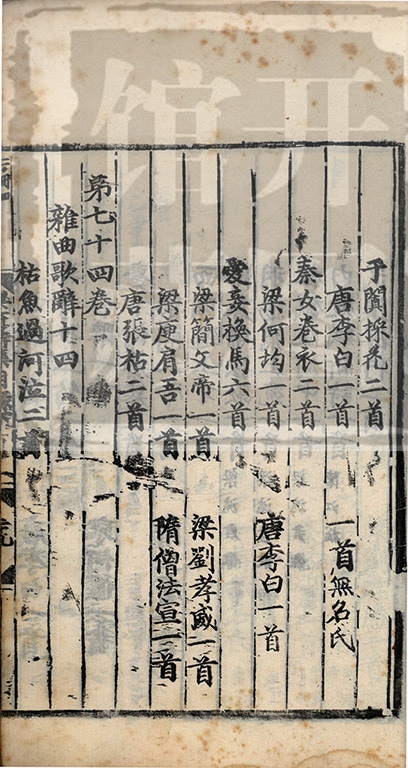 于闐採花二首
唐李白一首 一首無名氏
秦女卷衣二首
梁何均一首 唐李白一首
愛妾換馬六首
梁簡文帝一首 梁劉孝威一首
梁庾肩吾一首 隋僧法宣一首
唐張祜二首
第七十四卷
雜曲歌辭十四
枯魚過河泣二首